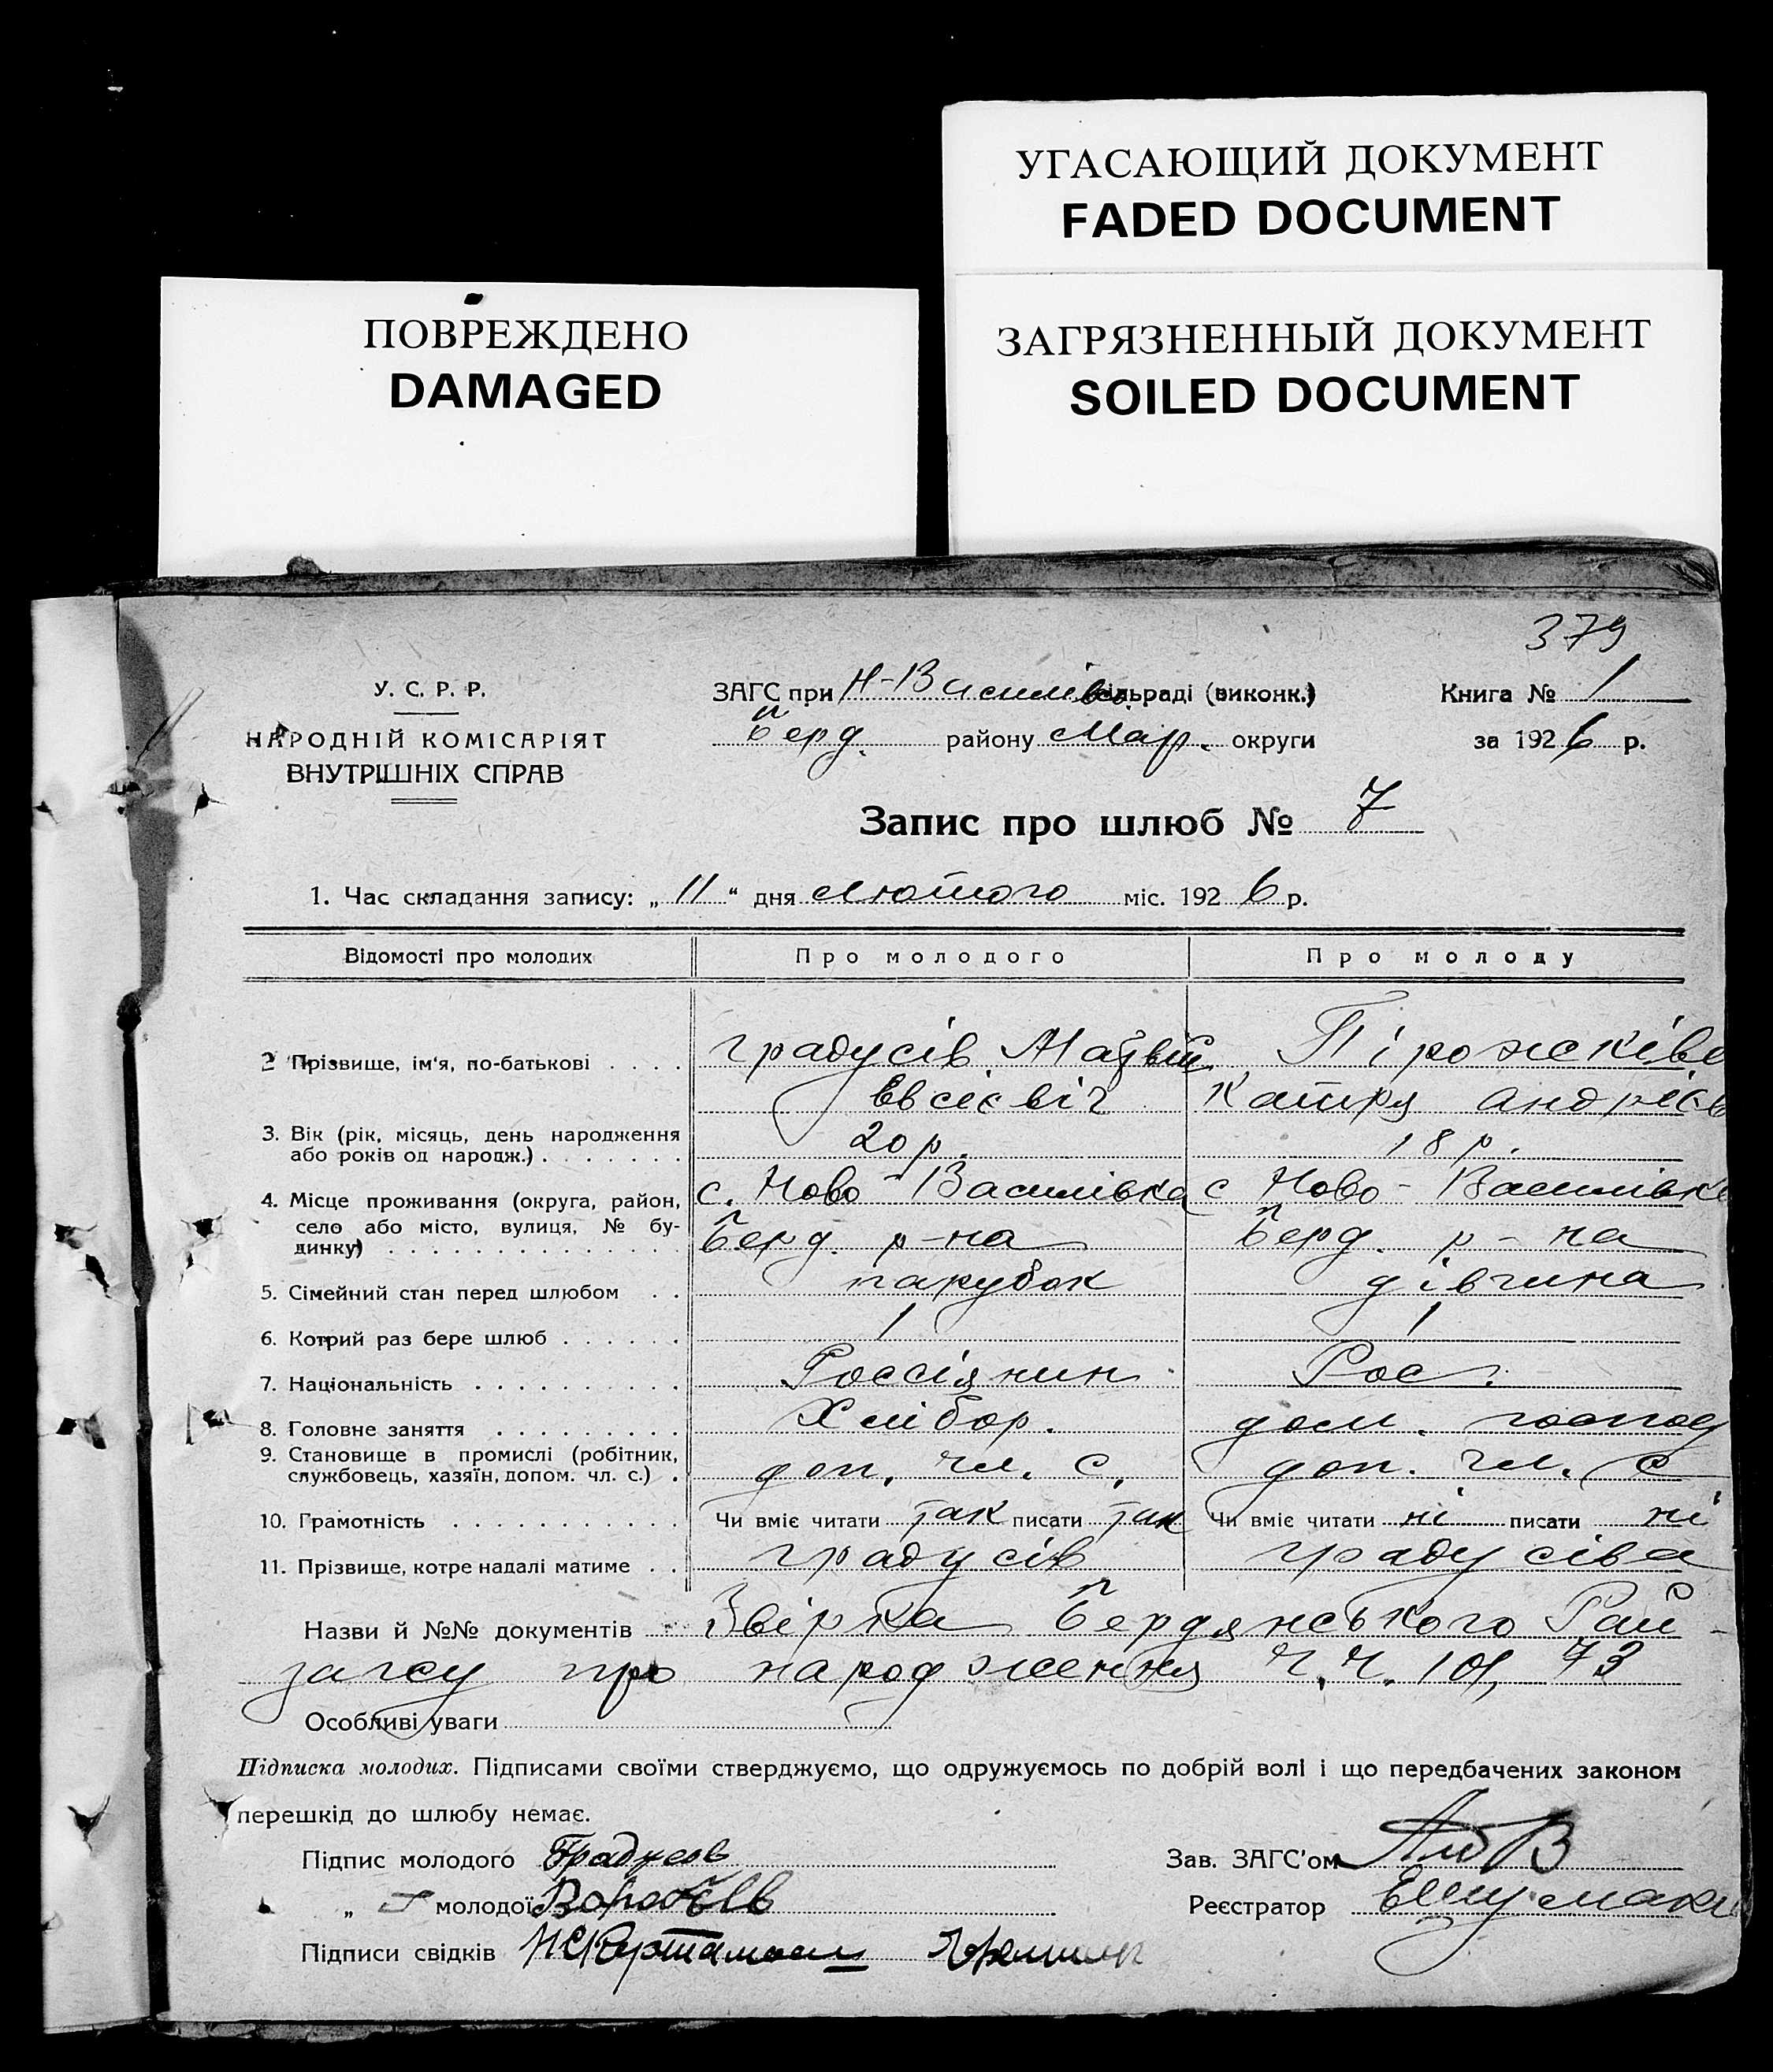 УГАСАЮЩИЙ ДОКУМЕНТ
FADED DOCUMENT
ПОВРЕЖДЕНО
DAMAGED
ЗАГРЯЗНЕННЫЙ ДОКУМЕНТ
SOILED DOCUMENT
379
У. С. Р. Р.
НАРОДНІЙ КОМІСАРІЯТ
ВНУТРІШНІХ СПРАВ
ЗАГС при Н-Василівс. сільраді (виконк.) Книга № 1
Берд. району Мар. округи за 1926 р.
Запис про шлюб № 7
1. Час складання запису: „ 11 “ дня лютого міс. 1926 р.
Відомості про молодих Про молодого Про молоду
2 Прізвище, ім'я, по-батькові . . . . Градусів Матвій Пірожківа
Євсієвіч Катря Андрієв
3. Вік (рік, місяць, день народження
або років од народж.) . . . . . . . 20 р. 18 р.
4. Місце проживання (округа, район, с. Ново-Василівка с Ново-Василівка
село або місто, вулиця, № бу-
динку) . . . . . . . . . . . . . . Берд. р-на Берд. р-на
5. Сімейний стан перед шлюбом . . парубок дівчина
6. Котрий раз бере шлюб . . . . . . 1 1
7. Національність . . . . . . . . . . Россіянин Рос.
8. Головне заняття . . . . . . . . . Хлібор. дом. господ
9. Становище в промислі (робітник,
службовець, хазяїн, допом. чл. с.) . доп. чл. с. доп. чл. с
10. Грамотність . . . . . . . . . . . Чи вміє читати так писати так Чи вміє читати ні писати ні
11. Прізвище, котре надалі матиме . . Градусів Градусіва
Назви й №№ документів Звірка Бердянського Рай-
загсу про народження Ч.Ч. 101, 73
Особливі уваги
Підписка молодих. Підписами своїми стверджуємо, що одружуємось по добрій волі і що передбачених законом
перешкід до шлюбу немає.
Підпис молодого Градусов Зав. ЗАГС'ом
„ молодої Реєстратор
Підписи свідків